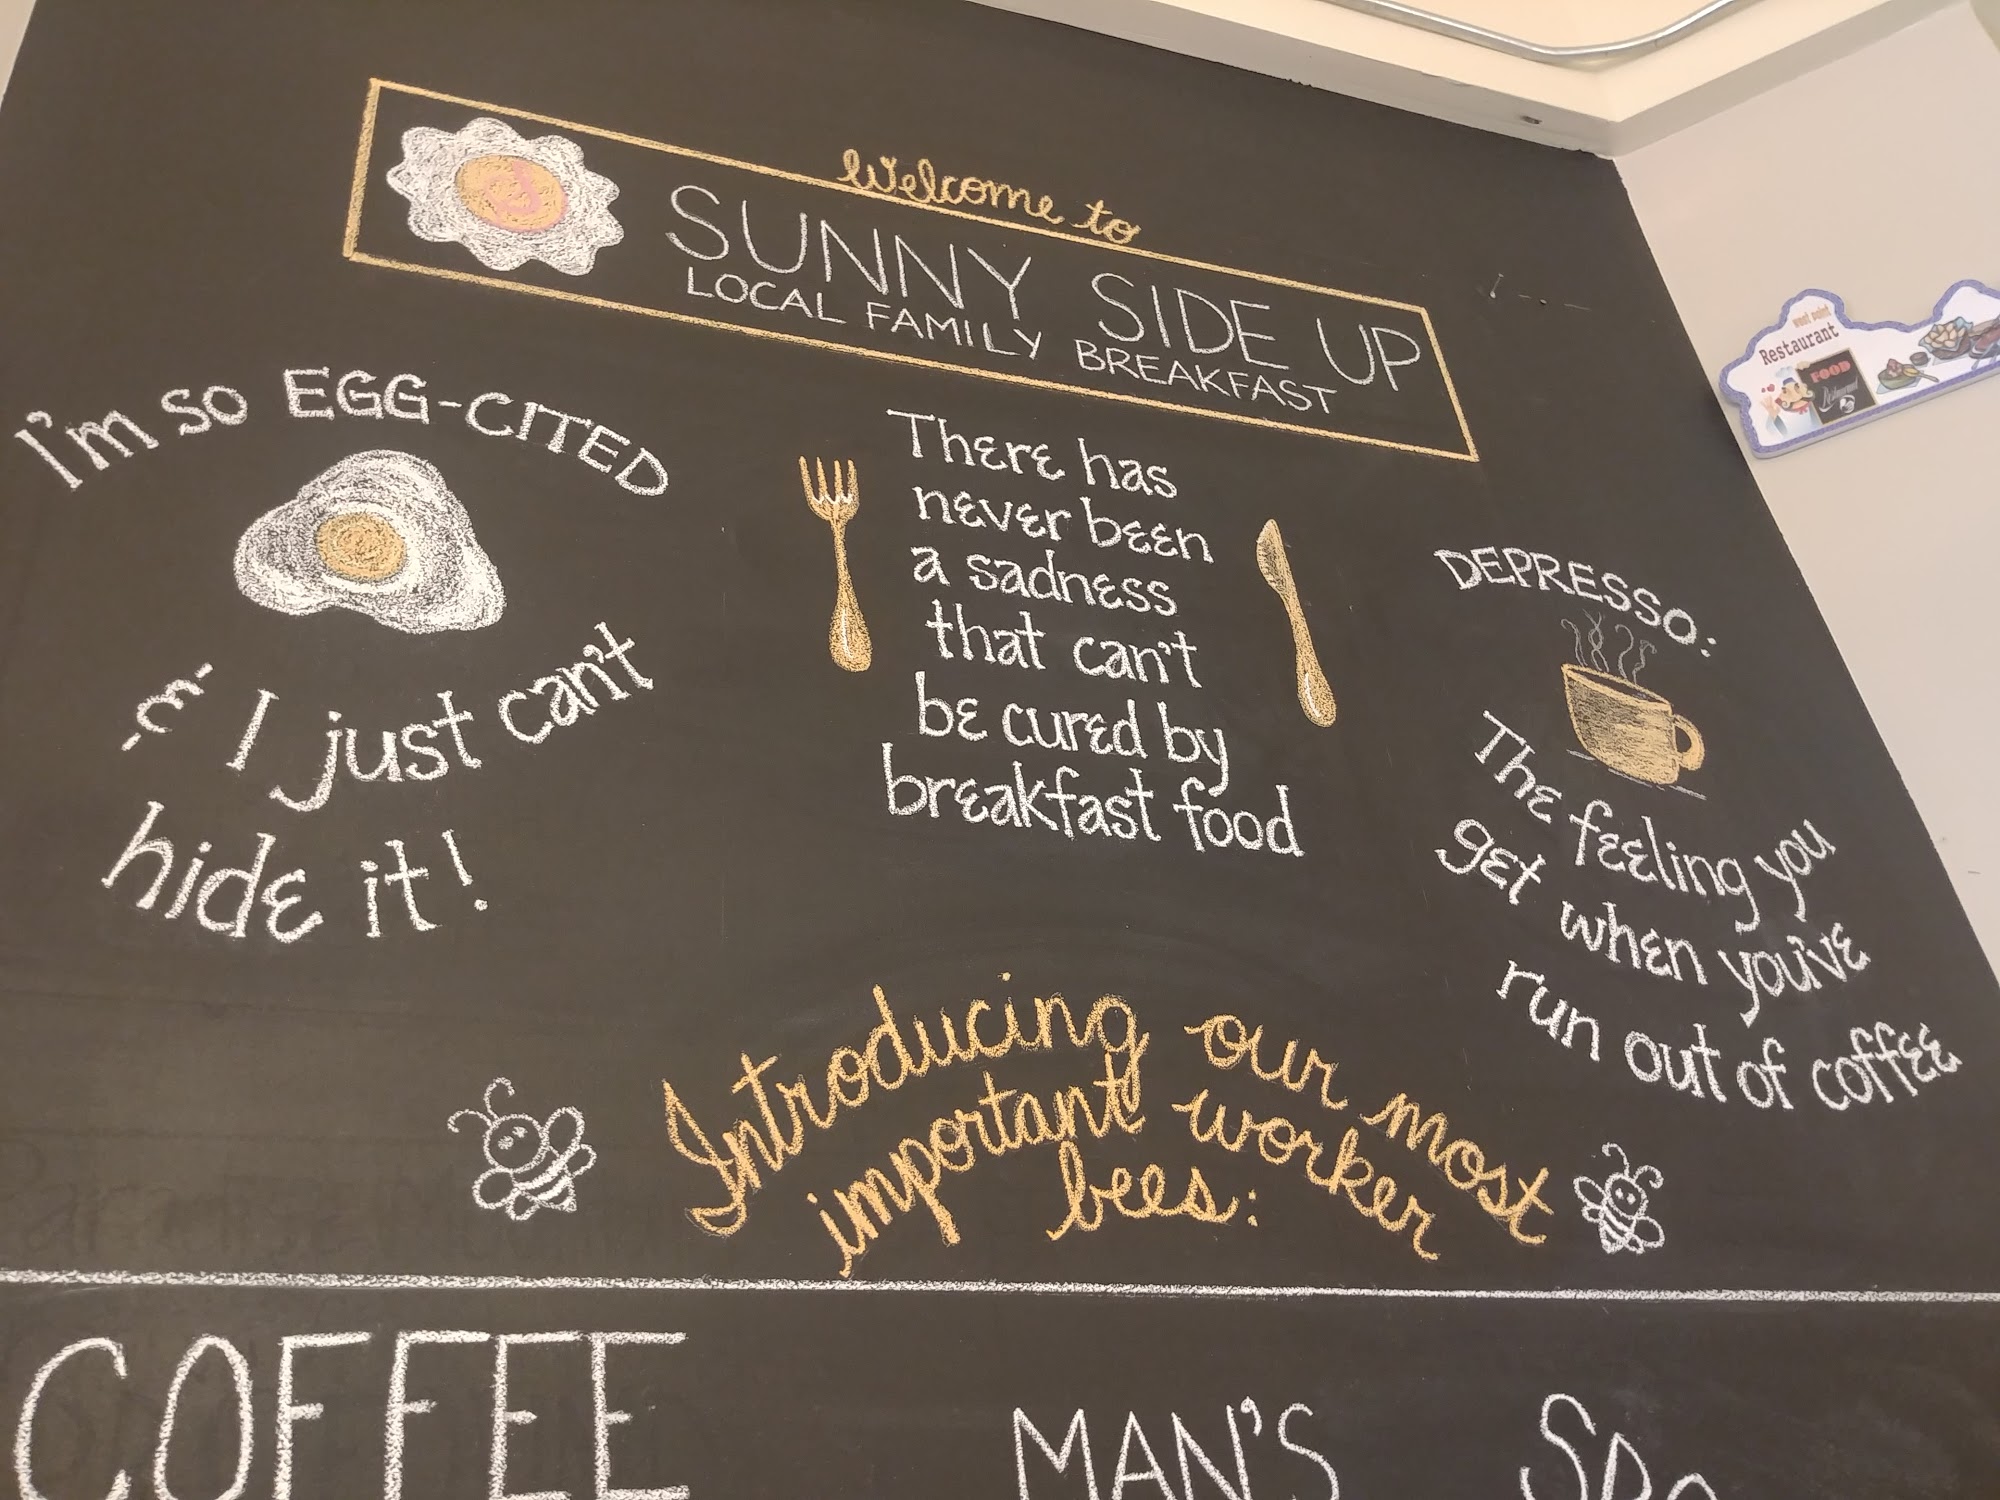 Welcome to
SUNNY SIDE UP
LOCAL FAMILY BREAKFAST
I'm so EGG-CITED
& I just can't
hide it!
There has
never been
a sadness
that can't
be cured by
breakfast food
DEPRESSO:
The feeling you
get when you've
run out of coffee
west point
Restaurant
FOOD
Restaurant
Introducing our most
important worker
bees:
COFFEE
MAN'S